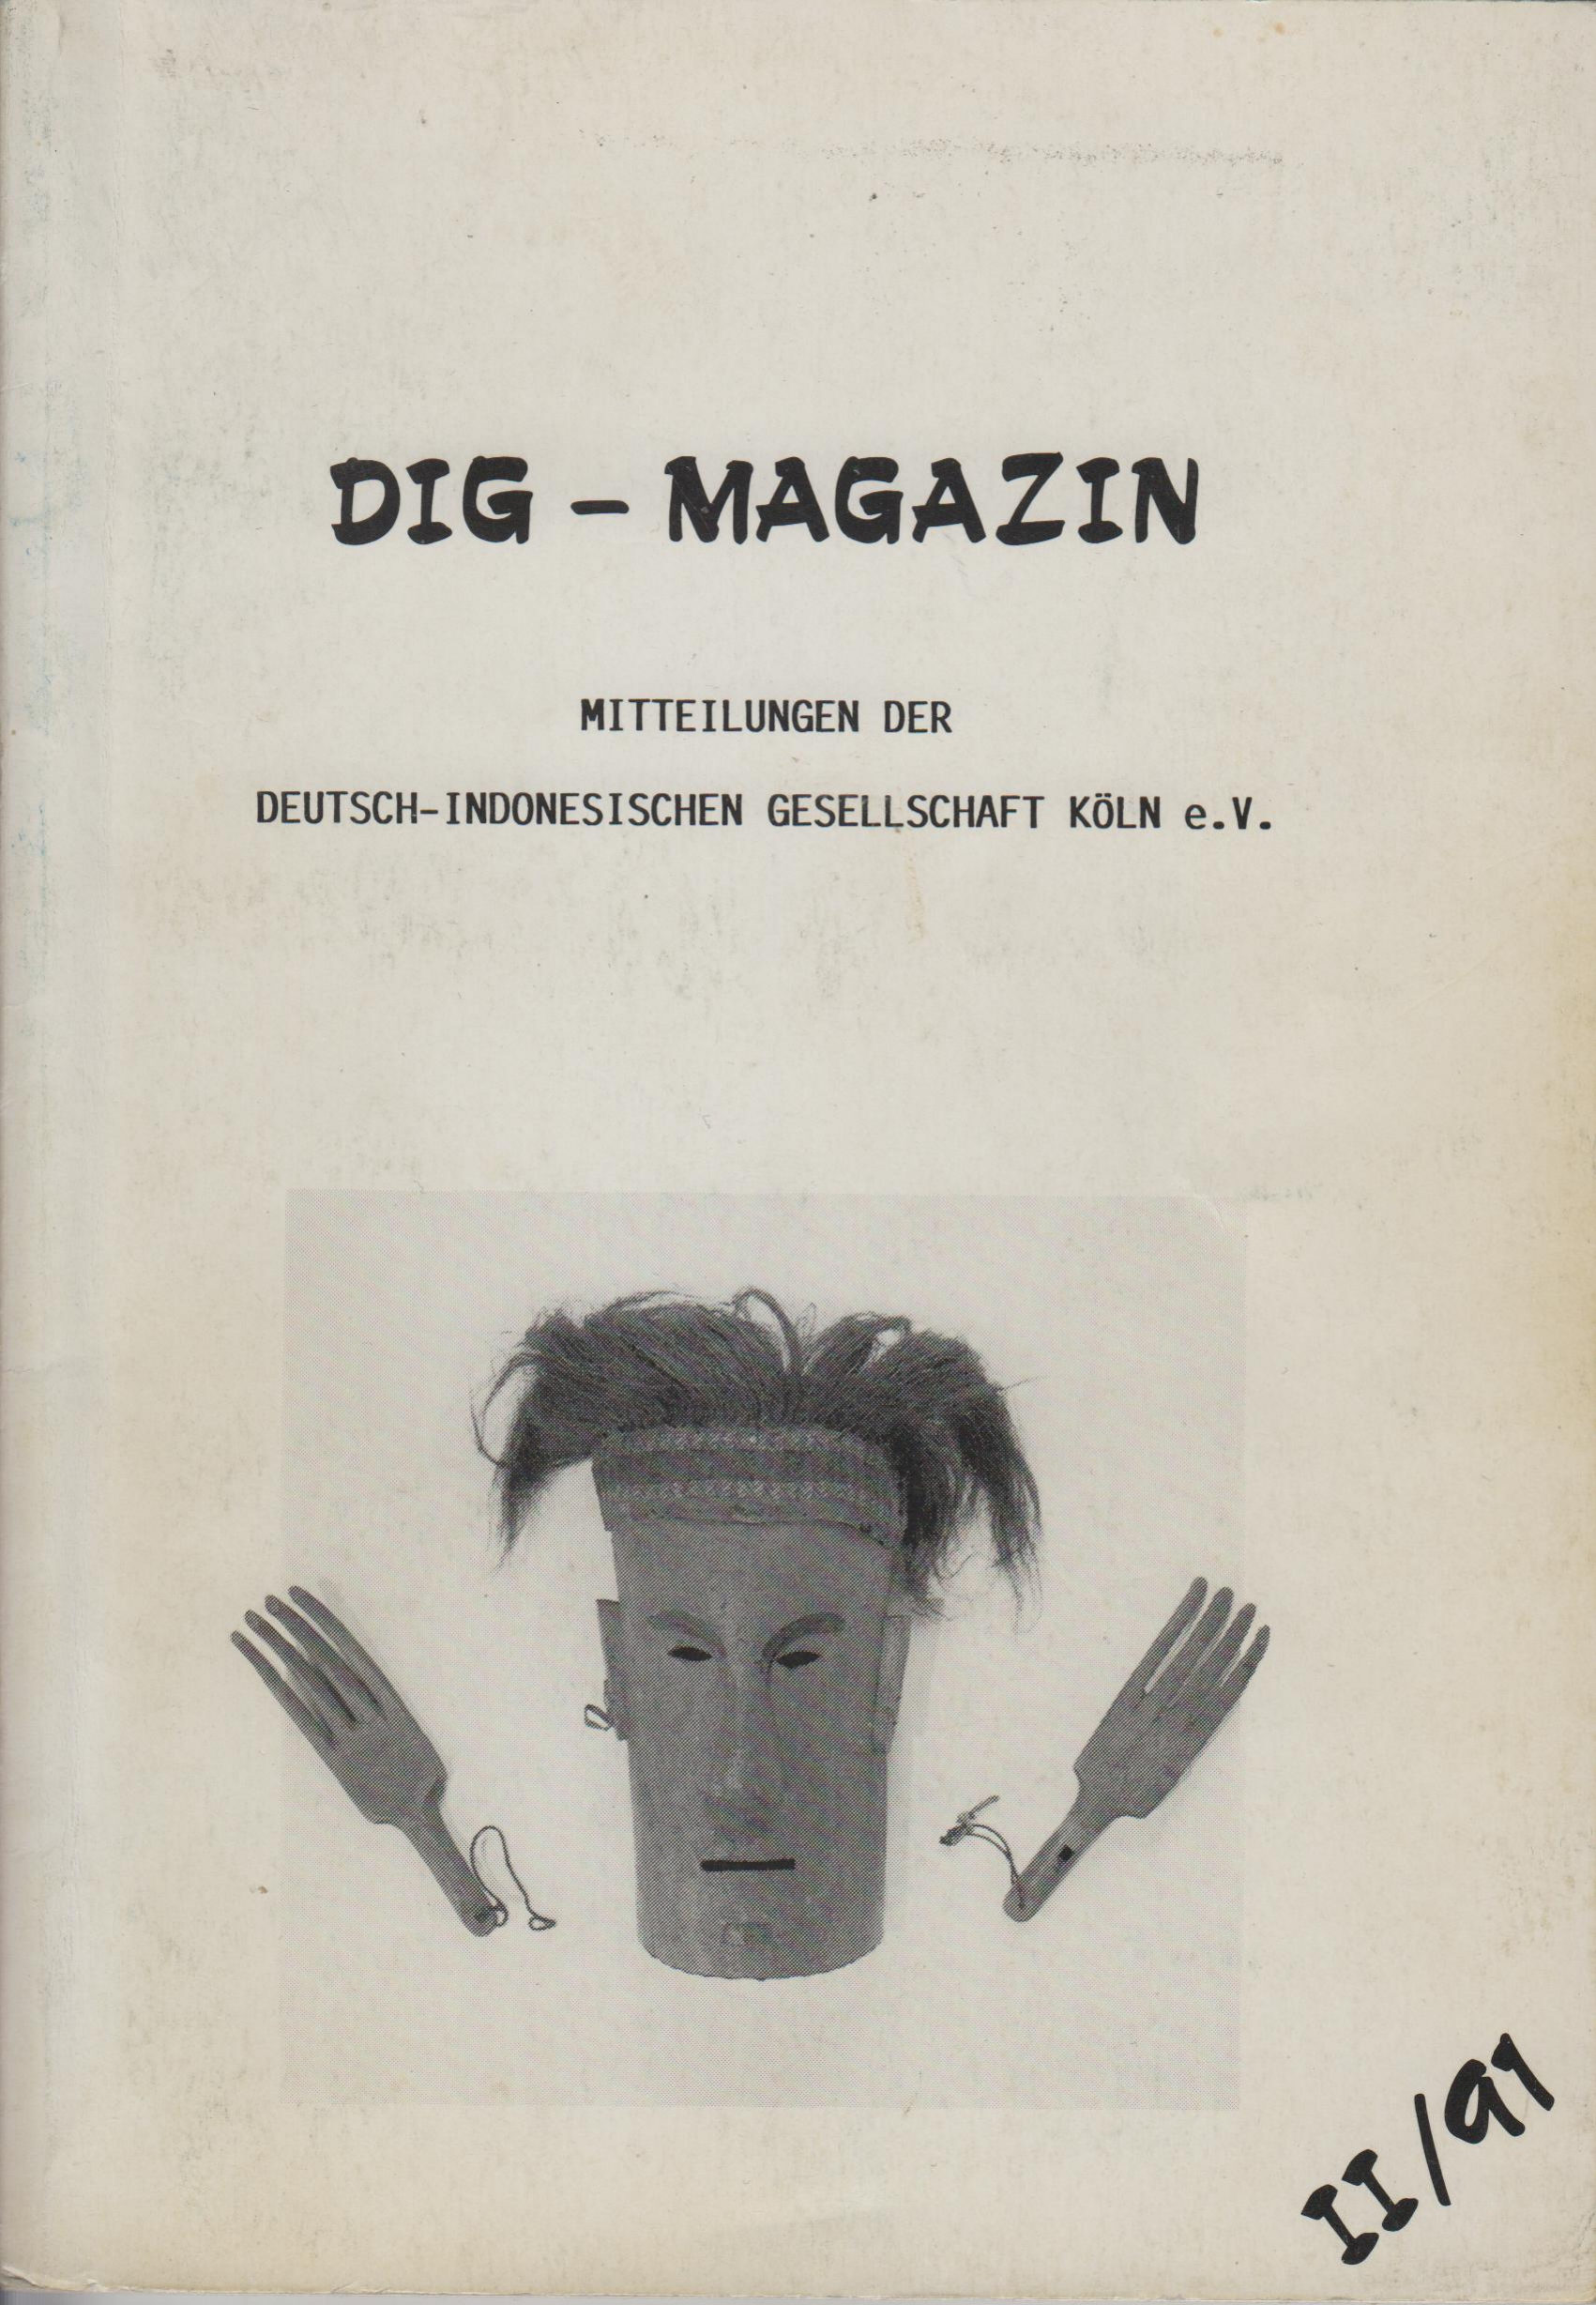 DIG - MAGAZIN
MITTEILUNGEN DER
DEUTSCH-INDONESISCHEN GESELLSCHAFT KÖLN e.V.
II/91